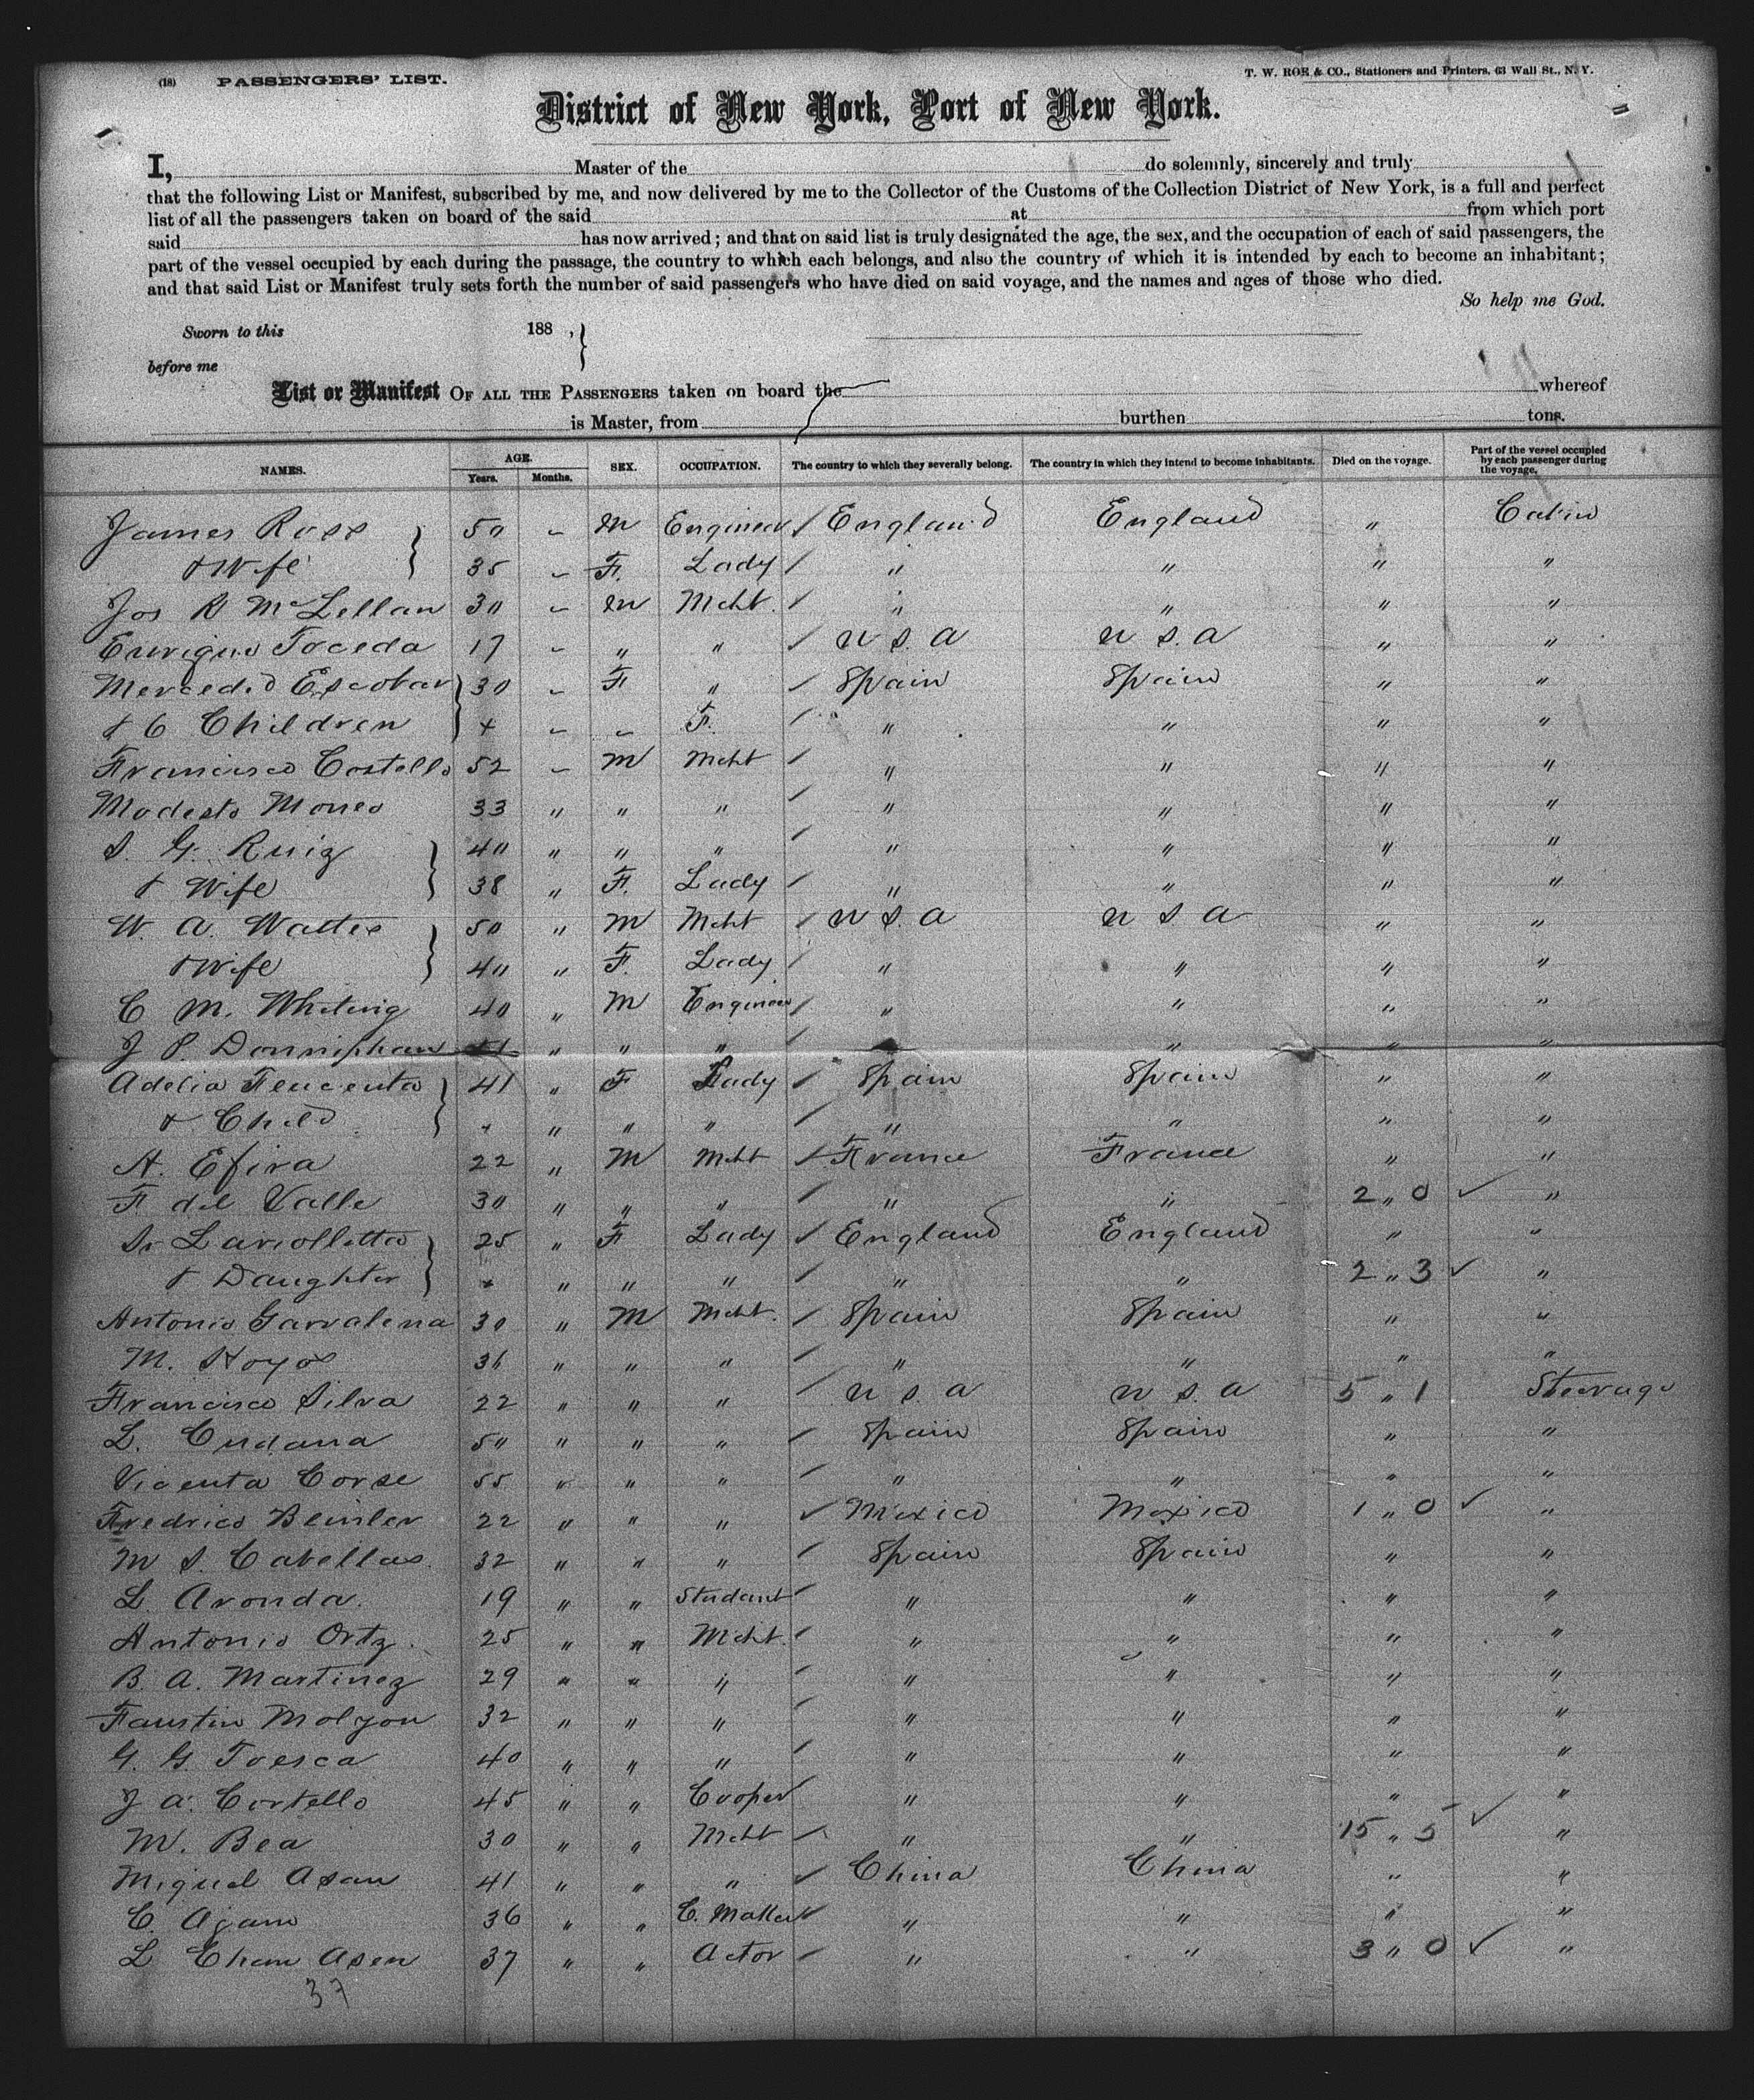 (18) PASSENGERS' LIST. T. W. ROE & CO., Stationers and Printers, 63 Wall St., N. Y.
District of New York, Port of New York.
I, Master of the do solemnly, sincerely and truly
that the following List or Manifest, subscribed by me, and now delivered by me to the Collector of the Customs of the Collection District of New York, is a full and perfect
list of all the passengers taken on board of the said at from which port
said has now arrived; and that on said list is truly designated the age, the sex, and the occupation of each of said passengers, the
part of the vessel occupied by each during the passage, the country to which each belongs, and also the country of which it is intended by each to become an inhabitant;
and that said List or Manifest truly sets forth the number of said passengers who have died on said voyage, and the names and ages of those who died.
So help me God.
Sworn to this 188 ,
before me
List or Manifest OF ALL THE PASSENGERS taken on board the whereof
is Master, from burthen tons.
NAMES. AGE. Years. Months. SEX. OCCUPATION. The country to which they severally belong. The country in which they intend to become inhabitants. Died on the voyage. Part of the vessel occupied by each passenger during the voyage.
James Ross 50 - M Engineer / England England " Cabin
& Wife 35 - F. Lady / " " " "
Jos R McLellan 30 - M Mcht. / " " " "
Enrique Toceda 17 - " " / U S. A U S. A " "
Merced Escobar 30 - F " / Spain Spain " "
& 6 Children + - - F. / " " " "
Francisco Costello 52 - M Mcht / " " " "
Modesto Moneo 33 " " " / " " " "
S. G. Ruiz 40 " " " / " " " "
& Wife 38 " F. Lady / " " " "
W. A. Walter 50 " M Mcht / U S. A U S A " "
& Wife 40 " F. Lady / " " " "
C M. Whiting 40 " M Engineer / " " " "
J P. Donniphan 41 " " " / " " "
Adelia 41 " F Lady / Spain Spain " "
& Child + " " " / " " " "
A. Efira 22 " M Mcht / France France " "
F. del Valle 30 " " " / " " 2 " 0 ✓ "
25 " F Lady / England England " "
& Daughter + " " " / " " 2 " 3 ✓ "
Antonio Garvalena 30 " M Mcht. / Spain Spain " "
M. Hoyos 36 " " " / " " " "
Francisco Silva 22 " " " / U S. A U S. A 5 " 1 Steerage
L. Cudana 50 " " " / Spain Spain " "
Vicenta Corse 55 " " " / " " " "
Fredrico Beinler 22 " " " ✓ Mexico Mexico 1 " 0 ✓ "
M S. Cabellas 32 " " " / Spain Spain " "
L. Aronda. 19 " " Student / " " " "
Antonio Ortz. 25 " " Mcht. / " " " "
B. A. Martinez 29 " " " / " " " "
Faustin Molyon 32 " " " / " " " "
G. G. Tresca 40 " " " / " " " "
J A. Cortello 45 " " Cooper / " " " "
M. Bea 30 " " Mcht / " " 15 " 5 ✓ "
Miguel Asan 41 " " " / China China " "
C. Ajam 36 " " C. Maker / " " " "
L Cham Asen 37 " " Actor / " " 3 " 0 ✓ "
37